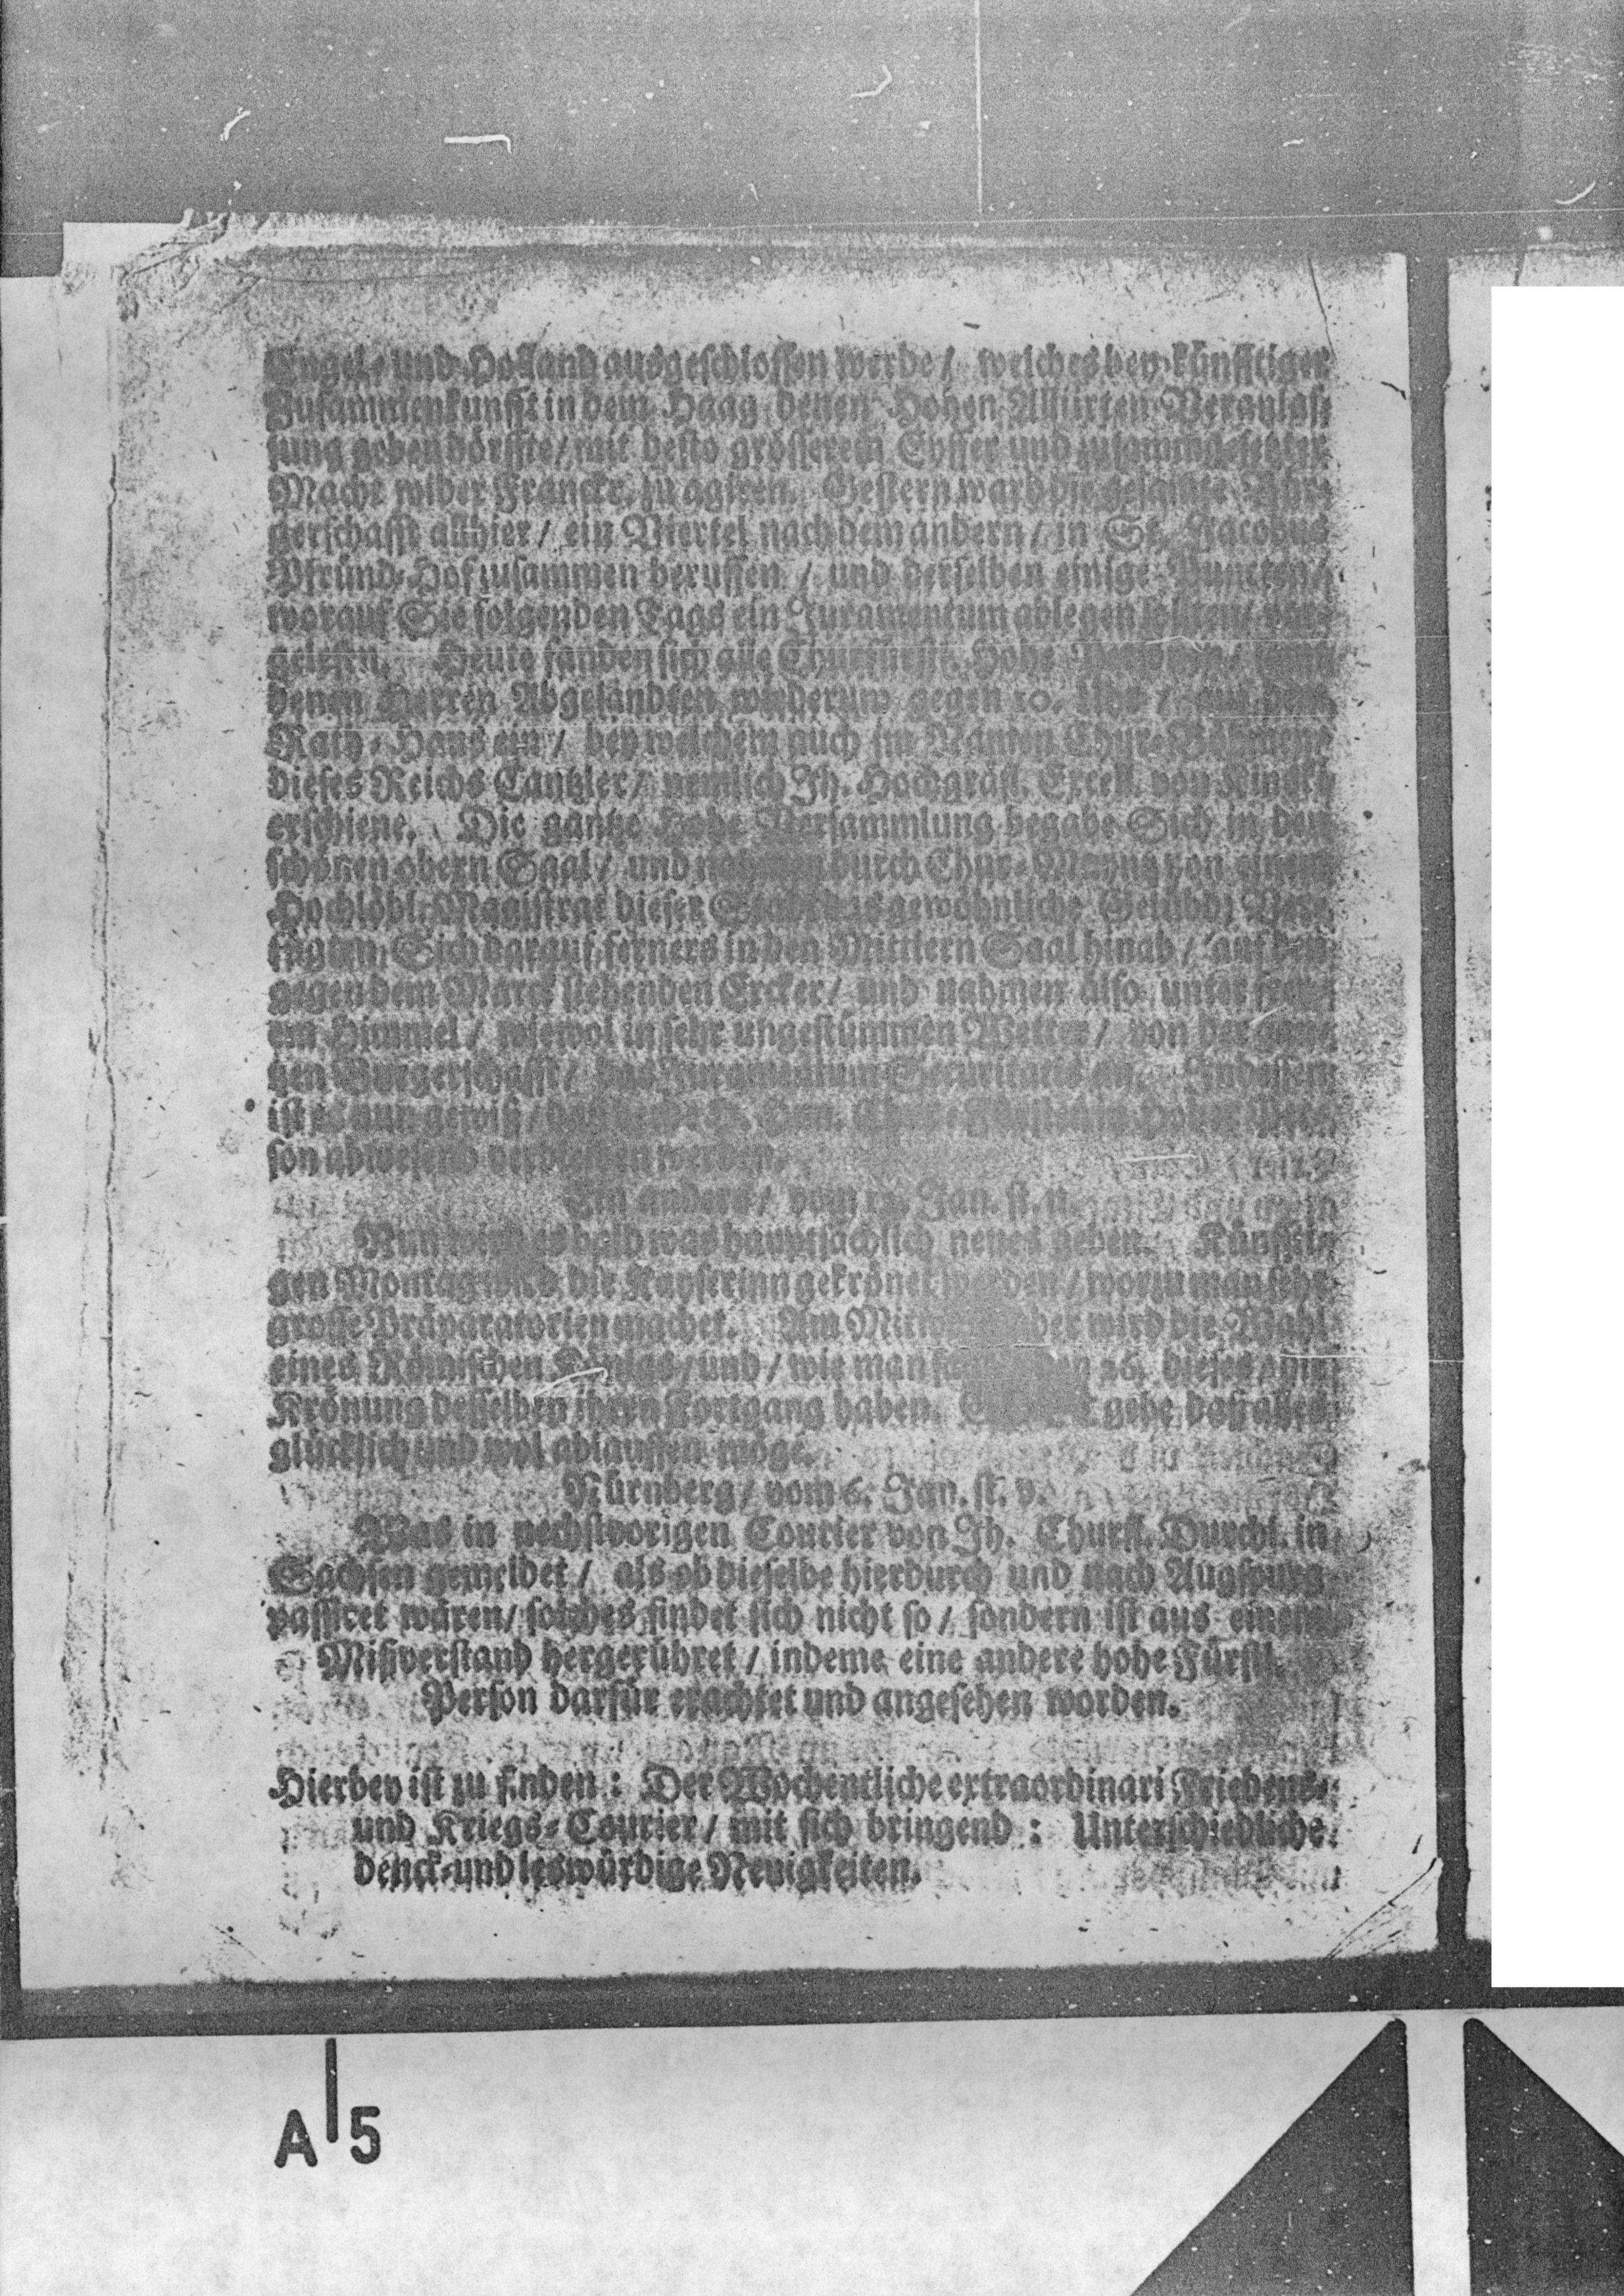 Engel- und Holland ausgeschlossen werde / welches bey künfftiger
Zusammenkunfft in dem Haag denen Hohen Alliirten Veranlas-
sung geben dörffte / mit desto grösserem Eyffer und zusammgesetzter
Macht wider Franckr. zu agiren. Gestern ward die gesamte
gerschafft allhier / ein Viertel nach dem andern / in St. Jacobus
Pfründ-Hof zusammen beruffen / und derselben einige Puncten /
worauf Sie folgenden Tags ein Juramentum ablegen sollten /
gelesen. Heute fanden sich alle Churfürstl. Hohe
denen Herren Abgesandten wiederum gegen 10. Uhr / auf dem
Rath-Haus ein / bey welchem auch im Namen Chur-Böhmens
dieses Reichs Cantzler / nemlich Ih. Hochgräfl. Excell. von Kinsky
erschiene. Die gantze Hohe Versammlung begabe Sich in den
schönen obern Saal / und nahmen durch Chur-Mayntz von einem
Hochlöbl. Magistrat dieser gewöhnliche Gelübd;
fügten Sich darauf ferners in den Mittlern Saal hinab / auf den
gegen dem Marck stehenden Ercker / und nahmen also unter frey-
em Himmel / wiewol in sehr ungestümmen Wetter / von der
gen Burgerschafft / das Juramentum Securitatis ab. Indessen
ist es nun gewiß / Chur- Hohe Per-
son abwesend verbleiben werden.
Ein anders / vom Jan. st. n.
Nun wird es bald was hauptsächlich neues geben. Künffti-
gen Montag wird die Kayserinn gekrönet werden / worzu man sehr
grosse Präparatorien machet. Am aber wird die Wahl
eines Römischen Königs / und / wie man 26. dieses / die
Krönung desselben ihren Fortgang haben. gebe daß alles
glücklich und wol ablauffen möge.
Nürnberg / vom 6. Jan. st. v.
Was in nechstvorigen Courier von Ih. Churfl. Durchl. in
Sachsen gemeldet / als ob dieselbe hierdurch und nach Augspurg
passiret wären / solches findet sich nicht so / sondern ist aus einem
Mißverstand hergerühret / indeme eine andere hohe Fürstl.
Person darfür erachtet und angesehen worden.
Hierbey ist zu finden : Der Wochentliche extraordinari Friedens-
und Kriegs-Courier / mit sich bringend : Unterschiedliche
denck- und leswürdige Neuigkeiten.
A 5